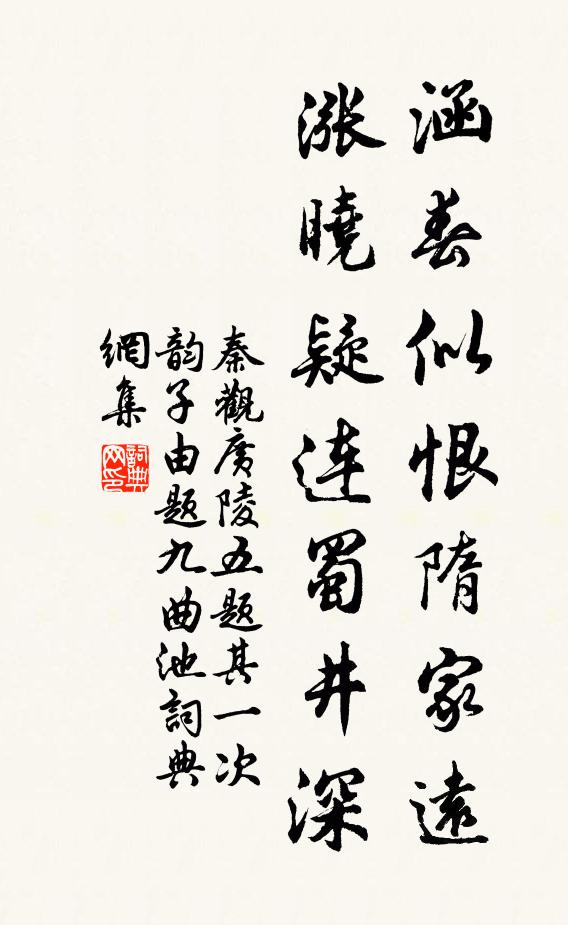 涵春似恨隋家遠
漲曉疑連蜀井深
秦觀廣陵五題其一次
韵子由题九曲池詞典
網集
詞典網印